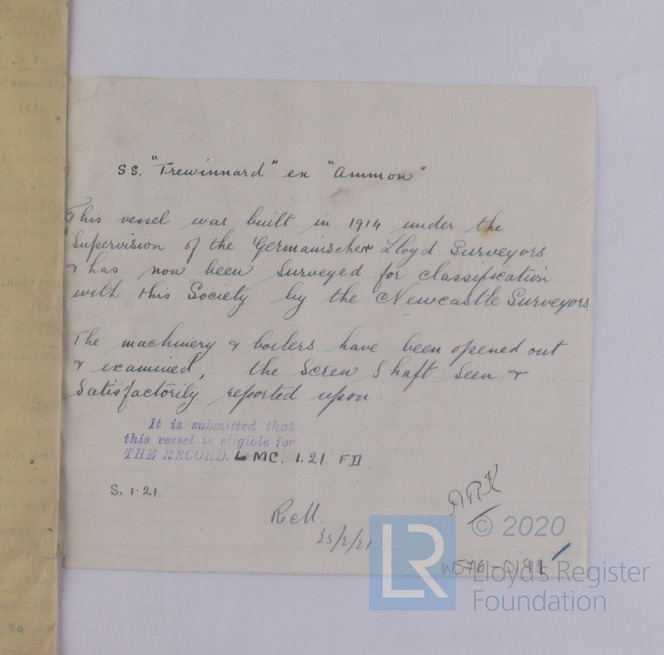 SS. "Trewinnard" ex "Ammon"
This vessel was built in 1914 under the
Supervision of the Germanischer Lloyd Surveyors
& has now been Surveyed for classification
with this Society by the Newcastle Surveyors.
The machinery & boilers have been opened out
& examined, the Screw Shaft Seen &
Satisfactorily reported upon.
It is submitted that
this vessel is eligible for
THE RECORD. LMC. 1.21. FD.
S. 1.21.
LR
© 2020
W576-0191
Lloyd's Register
Foundation